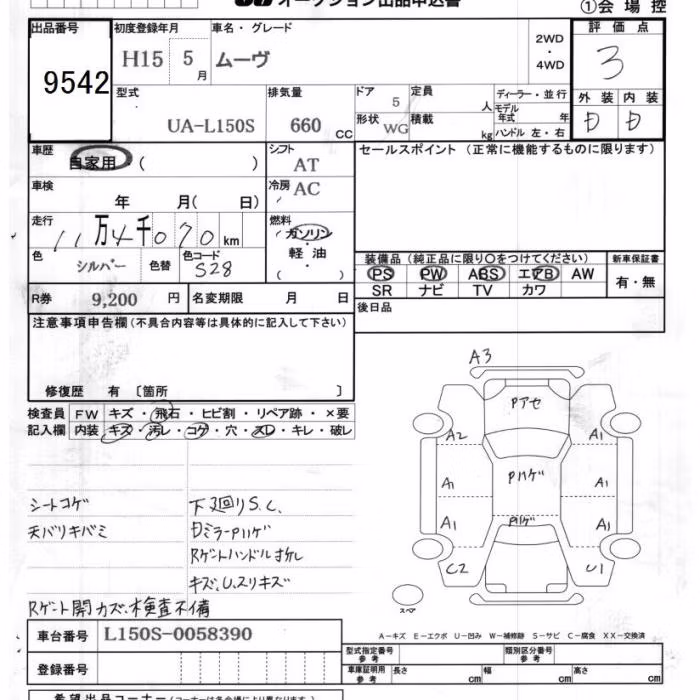 オークション出品申込書
①会場控
出品番号 9542
初度登録年月 H15 5月
車名・グレード ムーヴ
2WD・4WD
評価点 3
外装 内装
D D
型式 UA-L150S
排気量 660 CC
ドア 5
定員 人
形状 WG
積載 kg
ディーラー・並行
モデル年式 年
ハンドル 左・右
車歴 自家用・( )
シフト AT
セールスポイント (正常に機能するものに限ります)
車検 年 月( 日)
冷房 AC
走行 11万4千070km
燃料 ガソリン・軽油・( )
色 シルバー 色替
色コード S28
装備品(純正品に限り○をつけてください)
新車保証書
PS PW ABS エアB AW
SR ナビ TV カワ
有・無
R券 9,200 円
名変期限 月 日
後日品
注意事項申告欄(不具合内容等は具体的に記入して下さい)
修復歴 有 〔箇所 〕
検査員記入欄
FW キズ・飛石・ヒビ割・リペア跡・×要
内装 キズ・汚レ・コゲ・穴・スレ・キレ・破レ
シートコゲ
天バリキバミ
下廻りS.C.
DミラーPハゲ
Rゲートハンドルはがれ
キズ、U、スリキズ
Rゲート開カズ、検査不備
A3
Pアセ
A2
A1
Pハゲ
A1
A1
A1
Pハゲ
A1
C2
U1
スペア
A-キズ E-エクボ U-凹み W-補修跡 S-サビ C-腐食 XX-交換済
車台番号 L150S-0058390
登録番号
型式指定番号 参考
類別区分番号 参考
車庫証明用 参考
長さ cm 幅 cm 高さ cm
希望出品コーナー(コーナーは各会場により異なります)